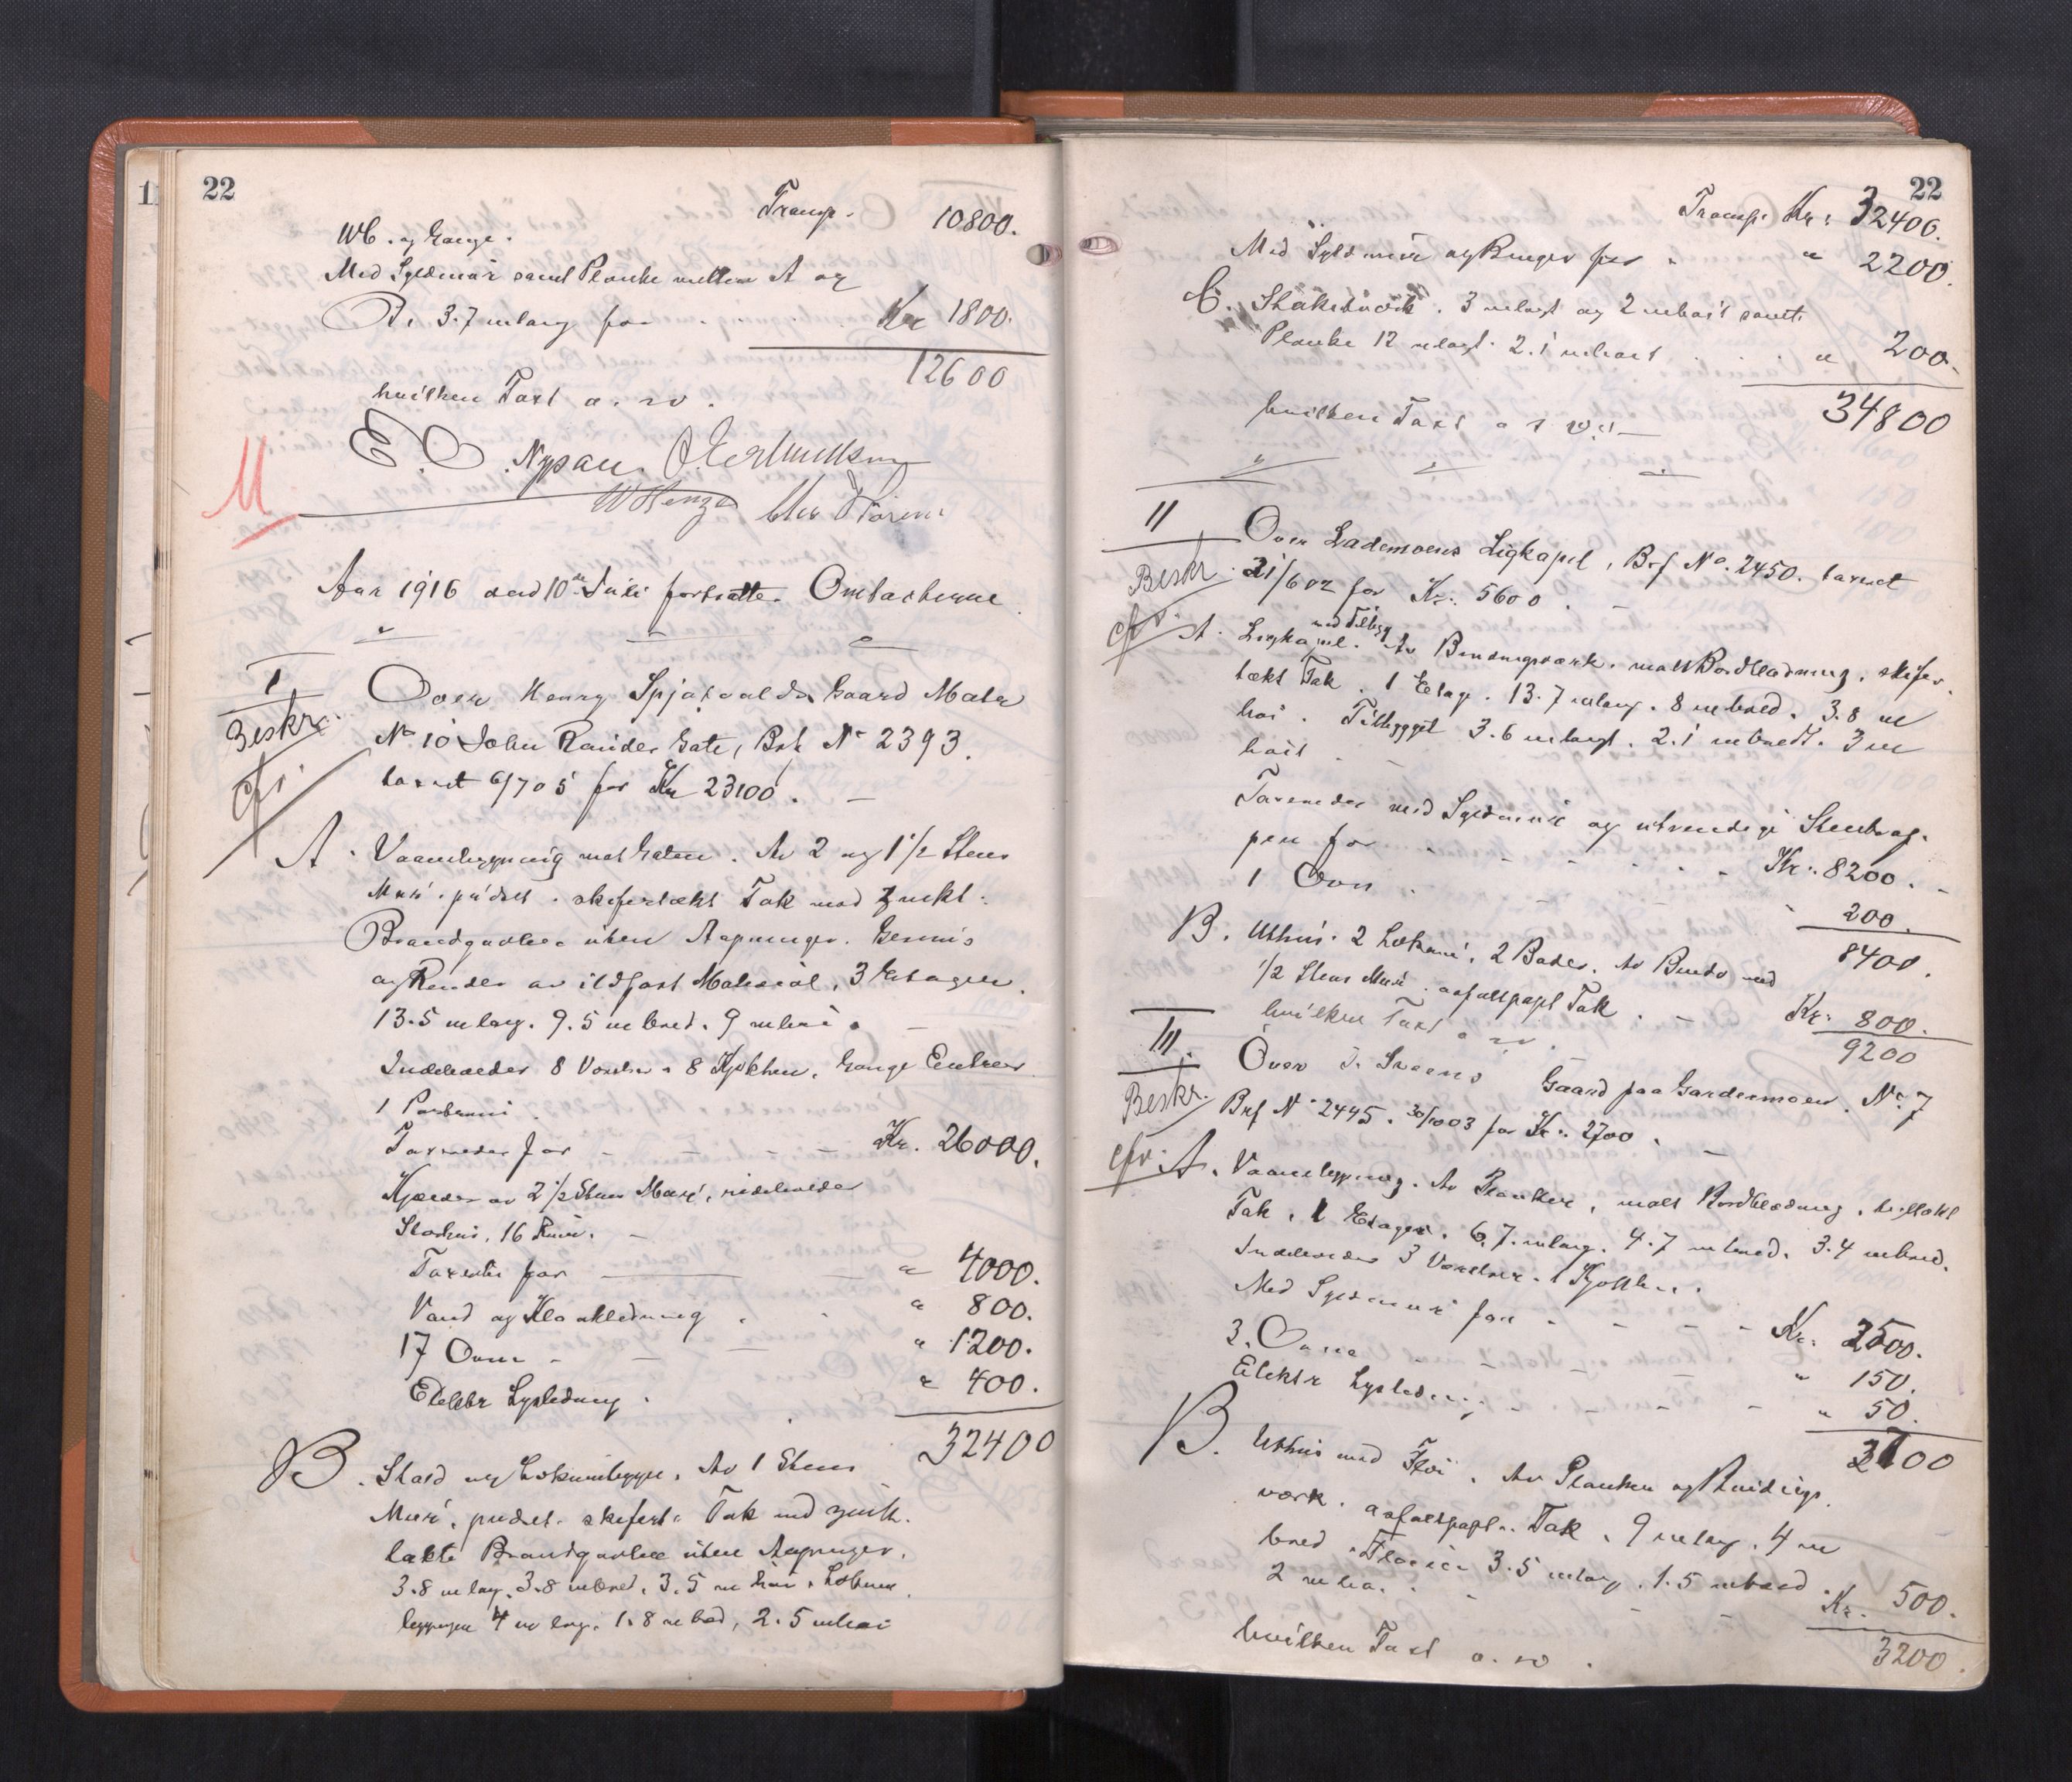 22
Transp. 10800.
WC. og Gange.
Med Syldmur samt Planke mellem A og
B, 3.7 m lang for Kr 1800.
12600
hvilken Taxt o. s. v.
E. O. Nypan.
M
Aar 1916 den 10de Juli fortsattes Omtaxterne.
I
Beskr.
cfr.
Over Henry Spjøtvolds Gaard Matr
No 10 John Raudes Gate, Brf No 2393.
taxert 6/7 05 for Kr 23100.
A. Vaaningbygning mot Gaten. Av 2 og 1 1/2 Stens
Mur. pudset. skifertækt Tak med zinkt.
Brandgavler uten Aapninger. Gesims
og Render av ildfast Material, 3 Etager.
13.5 m lang. 9.5 m bred. 9 m høi.
Indeholder 8 Værelser 8 Kjøkken. Gange Entreer
1 Portrum.
Taxeredes for Kr. 26000.
Kjælder av 2 1/2 Stens Mur, indeholder
16 Rum.
Taxertes for " 4000.
Vand og Kloakledning " 800.
17 Ovne " 1200.
Elektr Lysledning. " 400.
32400
B. Stald og Lokumbygn. Av 1 Stens
Mur. pudset. skifert. Tak med zink
tækte Brandgavler uten Aapninger.
3.8 m lang. 3.8 m bred. 3.5 m høi. Lokum
bygningen 4 m lang. 1.8 m bred, 2.5 m høi
22
Transp. Kr: 32400.
Med Syldmur og Binger for " 2200.
C. Stakitværk. 3 m langt og 2 m høit samt
Planke 12 m langt. 2.1 m høit " 200.
34800
hvilken Taxt o s v.
II
Beskr.
cfr.
Over Lademoens Ligkapel, Brf No. 2450. taxert
21/6 02 for Kr. 5600.
A. Ligkapel. med Tilbyg Av Bindingsværk. malt Bordklædning, skifer
tækt Tak. 1 Etage. 13.7 m lang. 8 m bred. 3.8 m
høi. Tilbygget 3.6 m langt. 2.1 m bredt. 3 m
høit.
Taxeredes med Syldmur og utvendige Stentrap-
per for Kr. 8200.
1 Ovn " 200.
8400.
B. Uthus. 2 Lokum, 2 Boder. Av Bindv med
1/2 Stens Mur. asfaltpapt Tak. Kr. 800.
9200
hvilken Taxt o s v.
III.
Beskr.
cfr.
Over Sveens Gaard paa Gardermoen. No. 7
Brf No 2445. 30/10 03 for Kr. 2700.
A. Vaaningbygning. Av Planker, malt Bordklædning, teltækt
Tak. 1 Etager. 6.7 m lang. 4.7 m bred. 3.4 m bred.
Indeholder 3 Værelser. 1 Kjøkken.
Med Syldmur for Kr. 2500.
3. Ovne " 150.
Elektr Lysledning " 50.
2700
B. Uthus med Fløi. Av Planker og Bindings
værk. asfaltpapt. Tak. 9 m lang. 4 m
bred. Fløien 3.5 m lang. 1.5 m bred.
2 m høi. Kr. 500.
3200.
hvilken Taxt o. s. v.